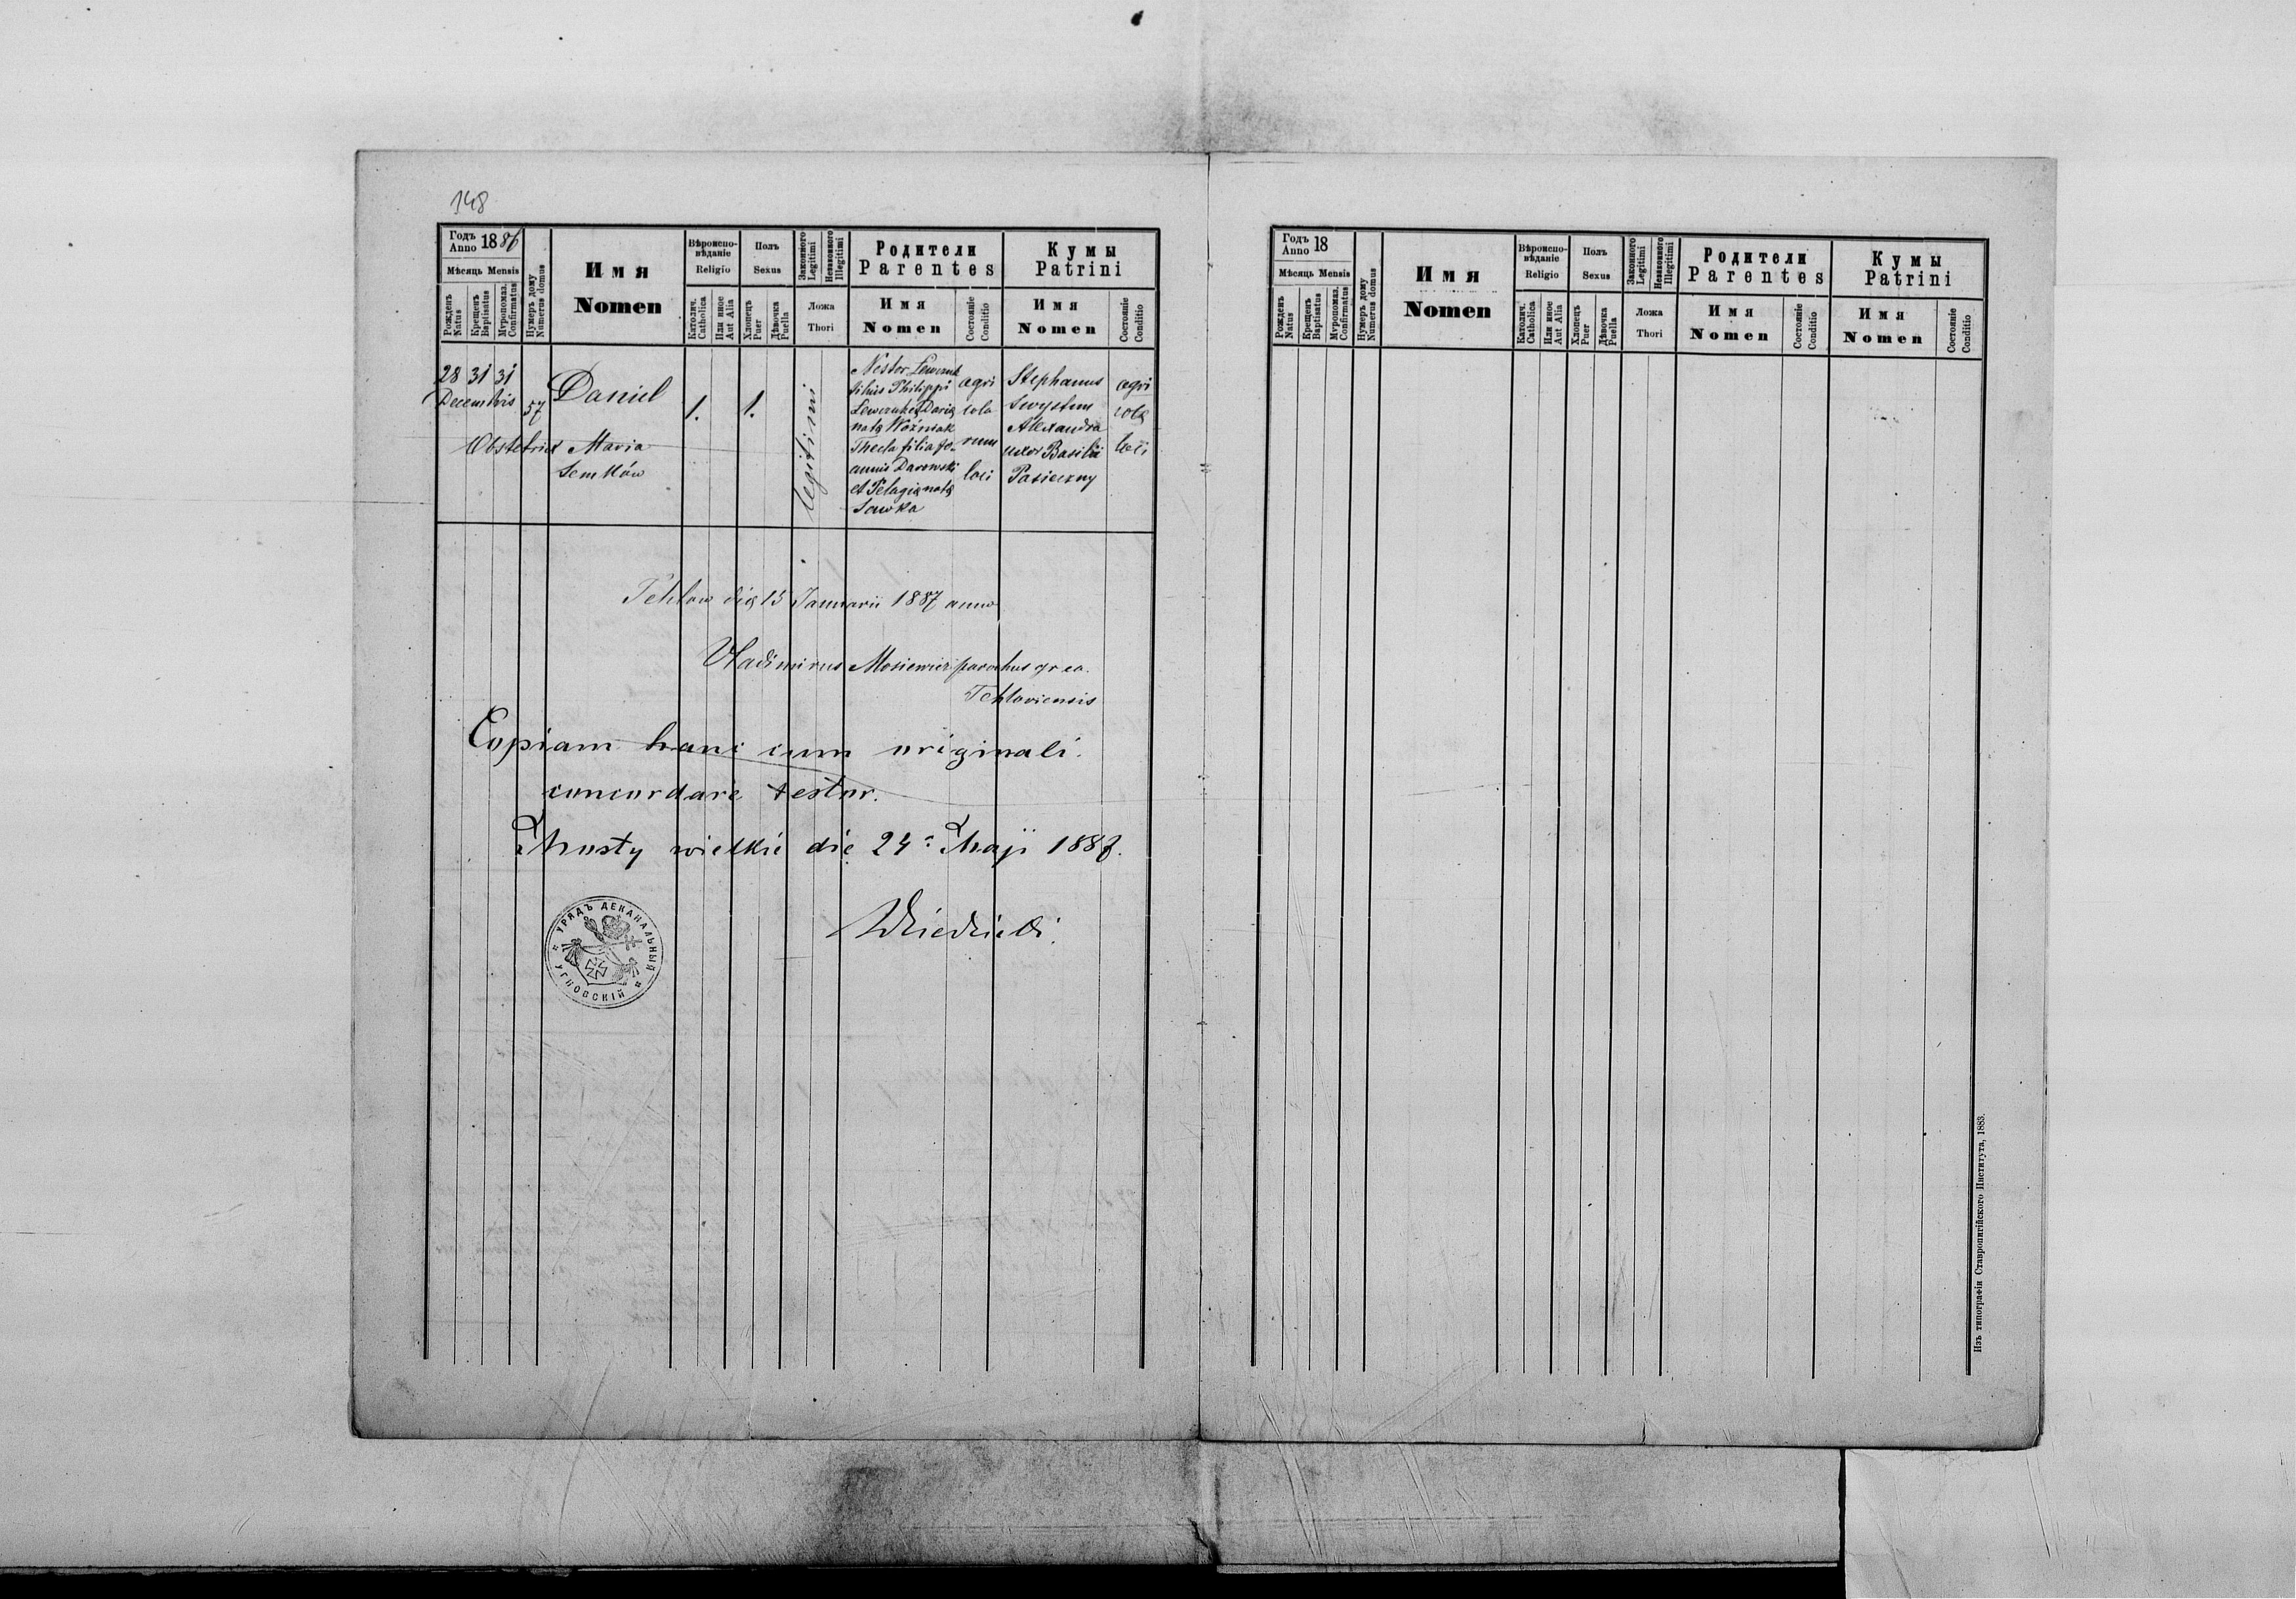 148
Годъ
Anno 1886
Мѣсяць Mensis
Рожденъ
Natus
Крещенъ
Baptisatus
Мѵропомаз.
Confirmatus
Нумеръ дому
Numerus domus
Имя
Nomen
Вѣроиспо-
вѣданіе
Religio
Католич.
Catholica
Или иное
Aut Alia
Полъ
Sexus
Хлопецъ
Puer
Дѣвочка
Puella
Законного
Legitimi
Незаконного
Illegitimi
Ложа
Thori
Родители
Parentes
Имя
Nomen
Состояніе
Conditio
Кумы
Patrini
Имя
Nomen
Состояніе
Conditio
28 31 31
Decembris
57
Daniel
1.
1.
legitimi
Nestor
filius Philippi
et Daria
nata Woźniak
Thecla filia Jo-
annis Darowski
et Pelagia nata
Sawka
agri
cola
rum
loci
Stephanus
Alexandra
uxor Basilii
Pasieczny
agri
colæ
loci
Obstetrix Maria
Semków
Tehlow die 15 Januarii 1887 anno
Vladimirus parochus gr ca.
Tehloviensis
Copiam hanc cum originali
concordare testor.
Mosty wielkie die 24 Maji 1888.
УРЯДЪ ДЕКАНАЛЬНЫЙ
УГНОВСКІЙ
Годъ
Anno 18
Мѣсяць Mensis
Рожденъ
Natus
Крещенъ
Baptisatus
Мѵропомаз.
Confirmatus
Нумеръ дому
Numerus domus
Имя
Nomen
Вѣроиспо-
вѣданіе
Religio
Католич.
Catholica
Или иное
Aut Alia
Полъ
Sexus
Хлопецъ
Puer
Дѣвочка
Puella
Законного
Legitimi
Незаконного
Illegitimi
Ложа
Thori
Родители
Parentes
Имя
Nomen
Состояніе
Conditio
Кумы
Patrini
Имя
Nomen
Состояніе
Conditio
Изъ типографіи Ставропигійского Института, 1883.